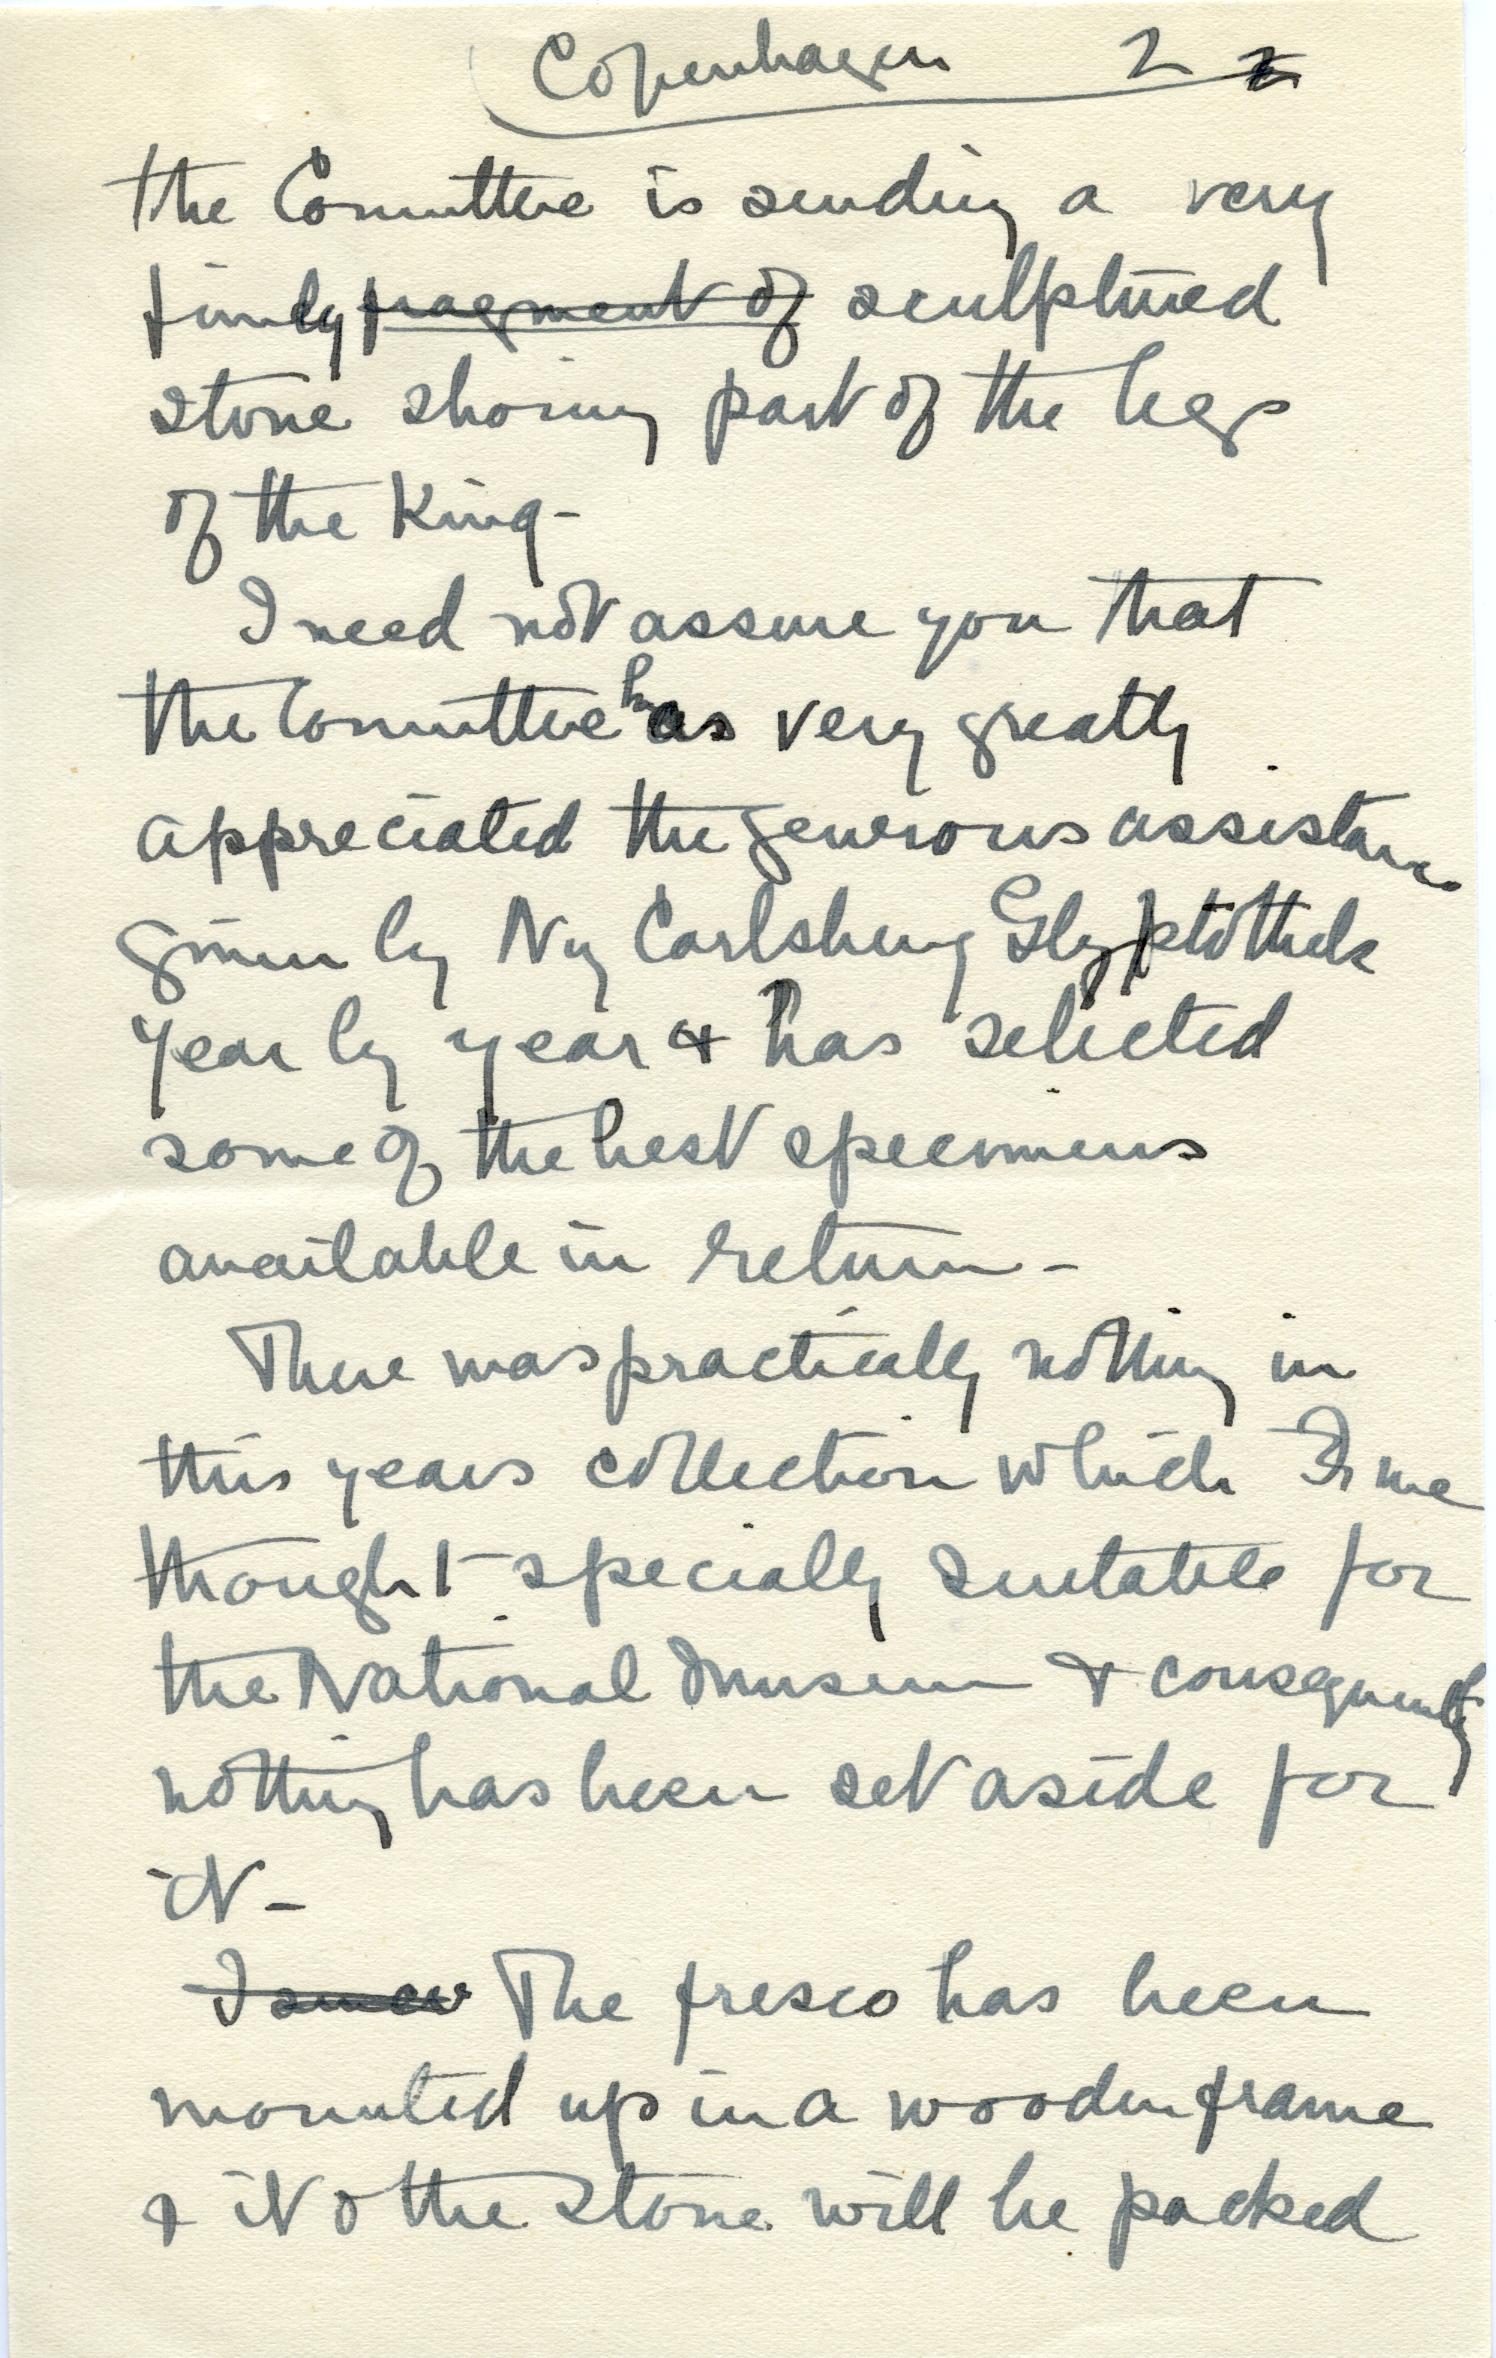 Copenhagen 2 2
the Committee is sending a very
finely fragment of sculptured
stone showing part of the legs
of the King -
I need not assure you that
the Committee has very greatly
appreciated the generous assistance
given by Ny Carlsberg Glyptothek
year by year & has selected
some of the best specimens
available in return -
There was practically nothing in
this years collection which I
thought specially suitable for
the National Museum & consequently
nothing has been set aside for
it -
I The fresco has been
mounted up in a wooden frame
& it & the stone will be packed